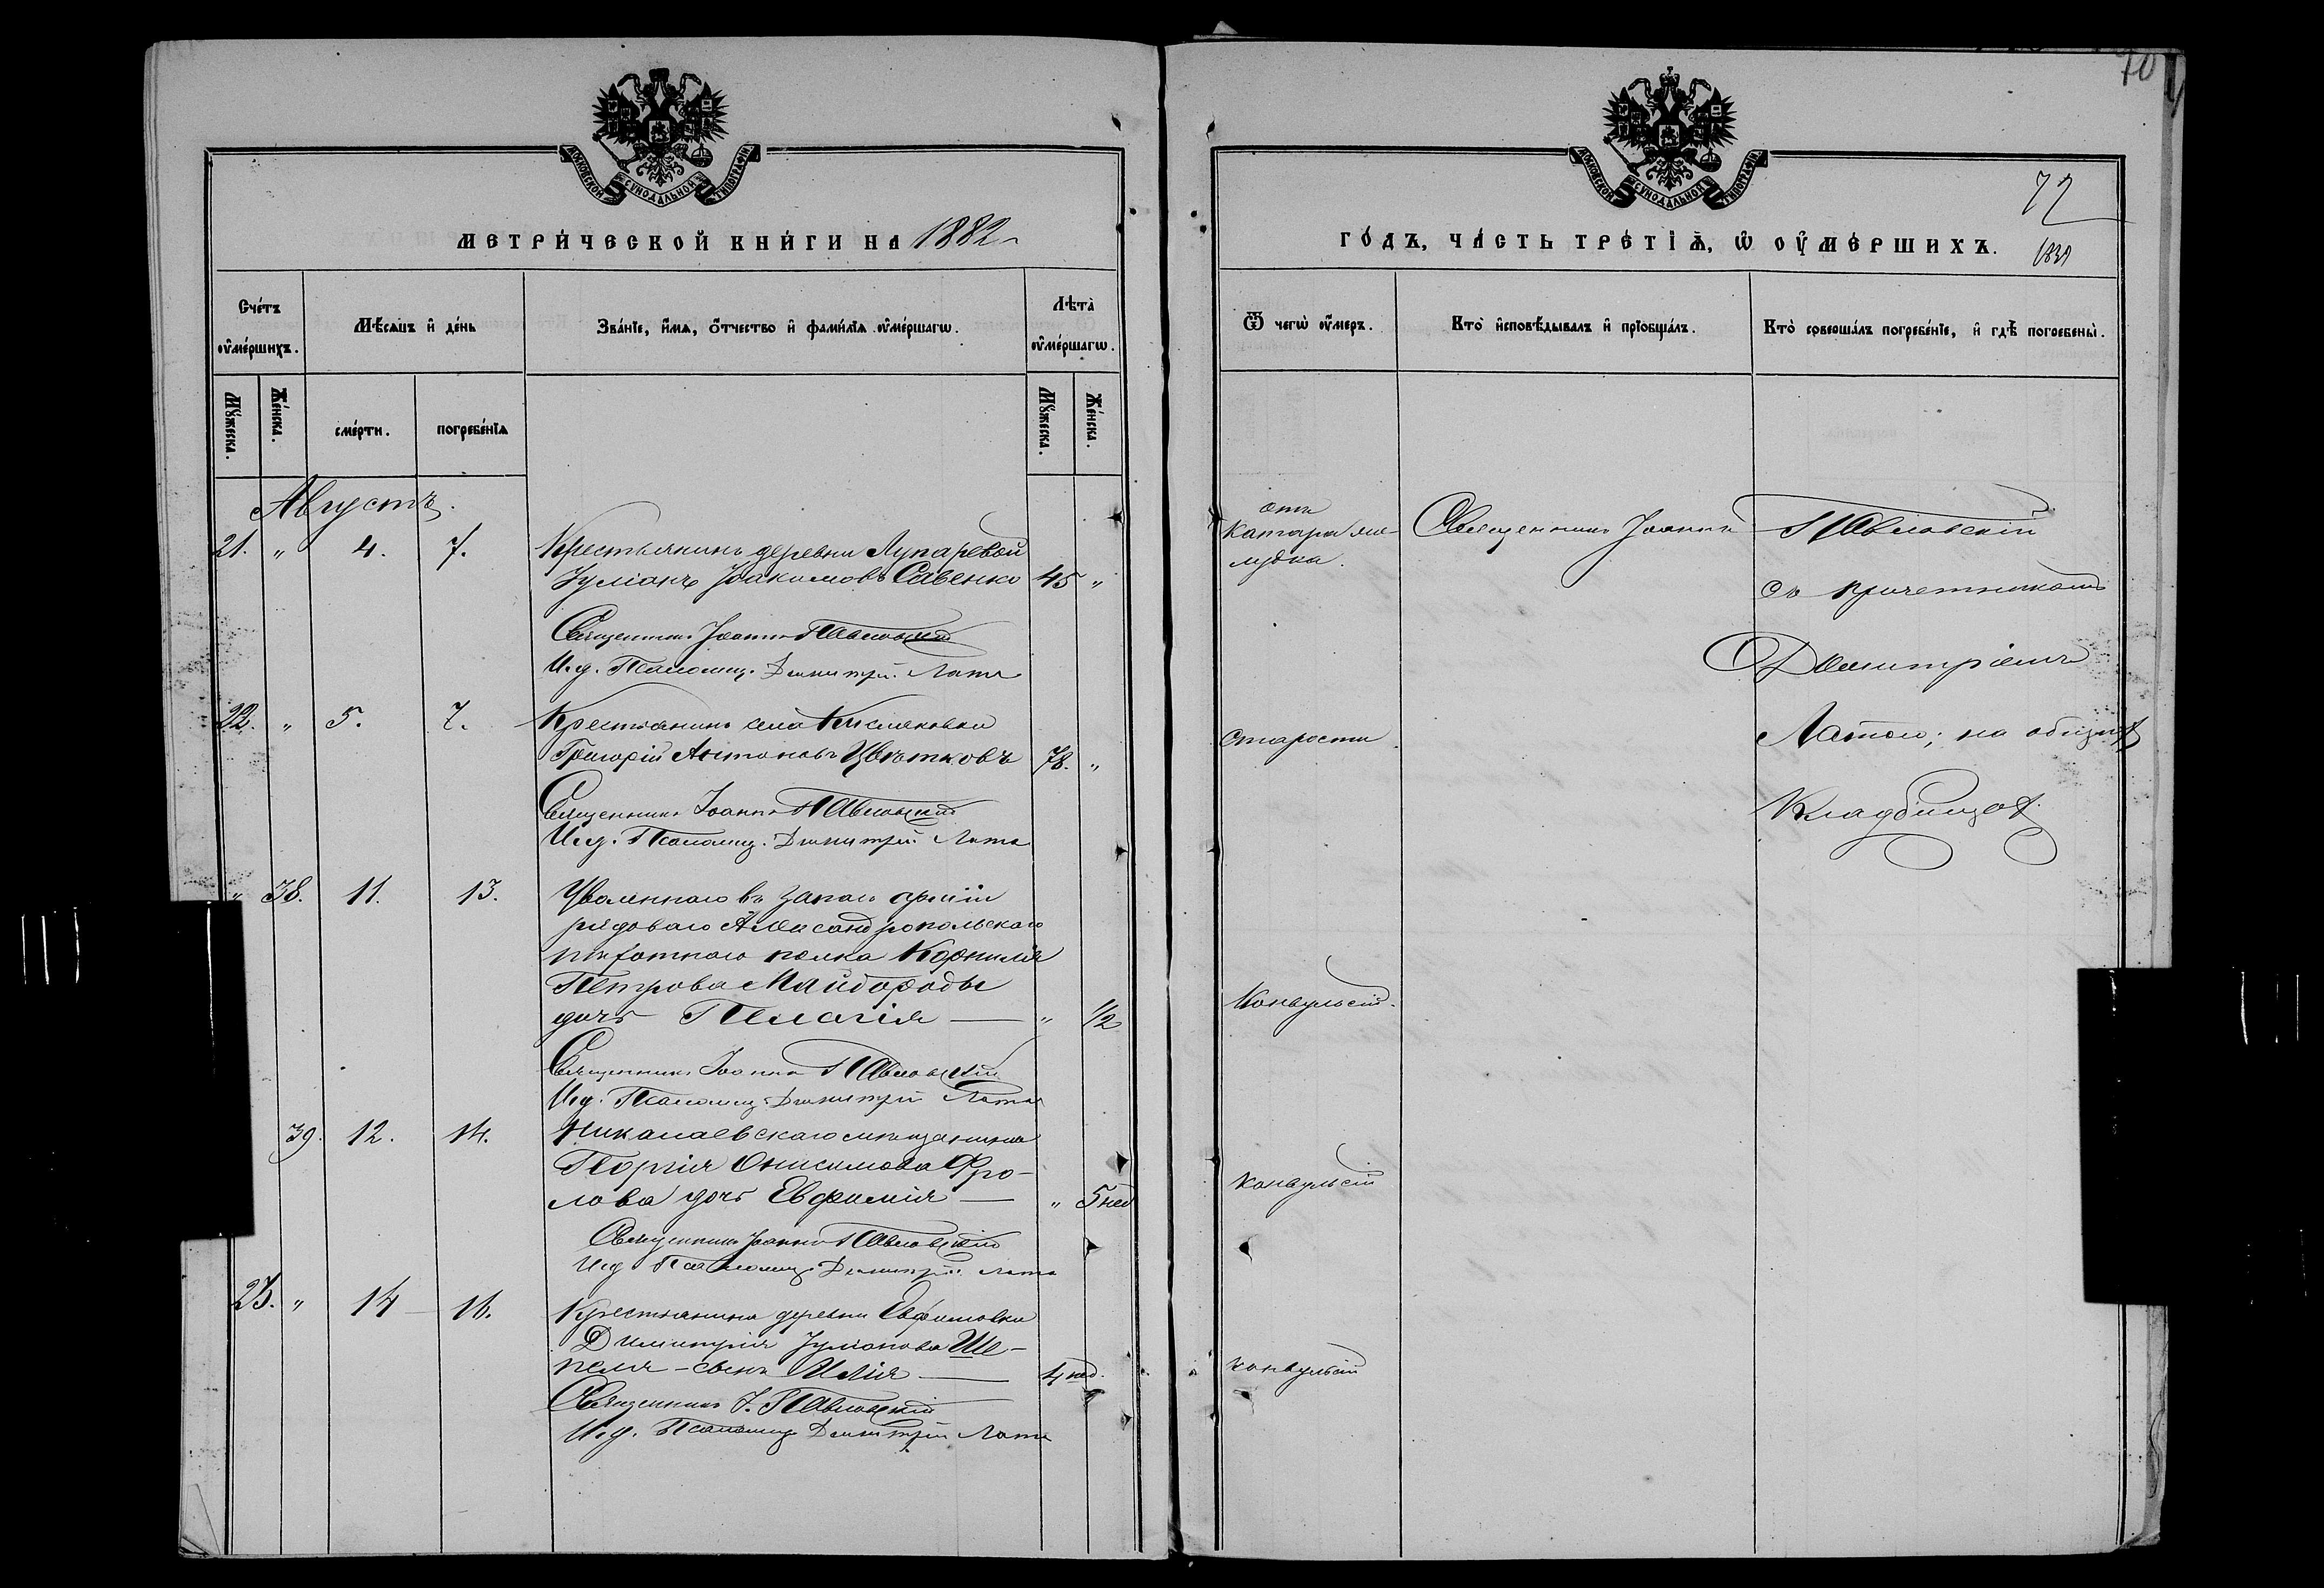 70
МОСКОВСКОЙ СУНОДАЛЬНОЙ ТИПОГРАФІИ
МЕТРИ́ЧЕСКОЙ КНИ́ГИ НА 1882
Счétъ ᲂу҆ме́ршихъ.
Мѣ́сяцъ и҆ де́нь
Зва́нїе, и҆́мѧ, ѻ҆́тчество и҆ фами́лїѧ ᲂу҆ме́ршагѡ.
Лѣта̀ ᲂу҆ме́ршагѡ.
Мꙋ́жеска.
Же́нска.
сме́рти.
погребе́нїѧ
Мꙋ́жеска.
Же́нска.
Августъ.
21. " 4. 7. Крестьянинъ деревни Лупаревой
Іуліанъ Іоакимовъ Савенко 45 "
Священникъ Іоаннъ Павловскій
И.д. Псаломщ. Димитрій Лата
22. " 5. 7. Крестьянинъ села Кисляковки
Григорій Антоновъ Цвѣтковъ 78. "
Священникъ Іоаннъ Павловскій
И.д. Псаломщ. Димитрій Лата
" 38. 11. 13. Уволеннаго въ запасъ арміи
рядоваго Александропольскаго
пѣхотнаго полка Корнилія
Петрова Майдороды
дочь Пелагія — " 1/2
Священникъ Іоаннъ Павловскій
И.д. Псаломщ. Димитрій Лата
39. 12. 14. Николаевскаго мѣщанина
Георгія Онисимова Фро-
лова дочь Евфимія — " 5 нед
Священникъ Іоаннъ Павловскій
И.д. Псаломщ. Димитрій Лата
23. " 14 16. Крестьянина деревни Евфимовки
Димитрія Іуліанова Ше-
пеля - сынъ Илія — 4 нед.
Священникъ І. Павловскій
И.д. Псаломщ. Димитрій Лата
МОСКОВСКОЙ СУНОДАЛЬНОЙ ТИПОГРАФІИ
72
ГО́ДЪ, ЧА́СТЬ ТРЕ́ТІѦ, Ѡ҆ ОУ҆МЕ́РШИХЪ.
Ѿ чегѡ̀ ᲂу҆́меръ.
Кто̀ и҆сповѣ́дывалъ и҆ прїобща́лъ.
Кто̀ соверша́лъ погребе́нїе, и҆ гдѣ̀ погребены̀.
отъ
катара же-
лудка.
Священникъ Іоаннъ Павловскій
съ причетникомъ
Димитріемъ
Латою; на общемъ
Кладбищѣ
старости
Конвульсій.
конвульсій
конвульсій